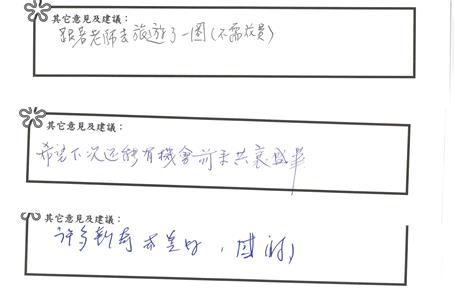 其它意見及建議：
跟著老師去旅遊了一圈(不需花費)
其它意見及建議：
希望下次還能有機會前來共襄盛舉
其它意見及建議：
許多新奇